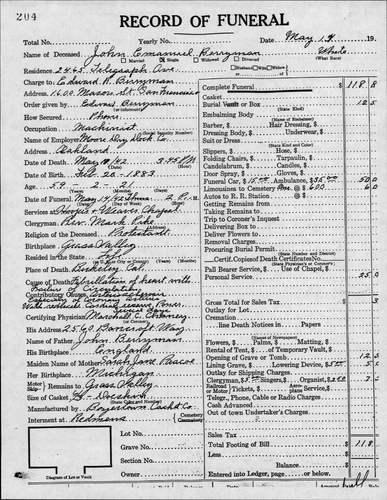 204
RECORD OF FUNERAL
Total No. Yearly No. Date May 14 19
Name of Deceased John Emanuel Berryman White
Married Single Widowed Divorced (What Race)
Residence 2465 Telegraph Ave.
Charge to Edward R. Berryman
Address 1600 Mason St. San Francisco
Order given by Edward Berryman
How Secured Phone
Occupation Machinist
(Social Security Number)
Employer Moore Dry Dock Co.
Address Oakland
Date of Death May 10/42 3:45 P.M.
Date of Birth Feb. 20-1883
Age 59 - 2 - 21
Date of Funeral May 14/42 2 P.M.
Services at Hooper & Weaver Chapel
Clergyman Rev. Mark
Religion of the Deceased Protestant
Birthplace Grass Valley
Resided in the State
Place of Death Berkeley Cal
Cause of Death Fibrillation of heart with
failure of circulation
Contributory Causes Arteriosclerosis
Certifying Physician Marshall C.
His Address 2560 Bancroft Way
Name of Father John Berryman
His Birthplace England
Maiden Name of Mother Sarah Jane Pascoe
Her Birthplace Michigan
Remains to Grass Valley
Size of Casket
Manufactured by
Interment at Redmens Cemetery
Crematory
Lot No.
Grave No.
Section No.
Block No.
Diagram of Lot or Vault
Complete Funeral $ 118 8
Casket
Burial Vault or Box 12 5
(State Kind)
Embalming Body
(Name of Embalmer)
Barber, $ Hair Dressing, $
Dressing Body, $ Underwear, $
Suit or Dress
(State Kind and Color)
Slippers, $ Hose, $
Folding Chairs, $ Tarpaulin, $
Candelabrum, $ Candles, $
Door Spray, $ Gloves, $
Funeral Car, $ Ambulance, $ 50 0
Limousines to Cemetery 6 0
Autos to R. R. Station @ $
Getting Remains from
Taking Remains to
Trip to Coroner's Inquest
Delivering Box to
Deliver Flowers to
Removal Charges
Procuring Burial Permit
(State Number and District)
Certif. Copies of Death Certificate No.
(State Physician's or Coroner's)
Pall Bearer Service, $ Use of Chapel, $
Personal Service 25 0
Gross Total for Sales Tax $
Outlay for Lot
Cremation
line Death Notices Papers
(Names of Newspapers)
Flowers, $ Palms, $ Matting, $
Rental of Tent, $ of Temporary Vault, $
Opening of Grave or Tomb 12 5
Lining Grave, $ Lowering Device, $
Outlay for Shipping Charges
Clergyman, $ Singers, $ Organist, $
Railroad Tickets, $ Plane service, $
Telegr., Phone, Cable or Radio Charges
Cash Advanced
Out of town Undertaker's Charges
Sales Tax $
Total Footing of Bill $ 118
Less $
Balance $
Entered into Ledger, page or below.